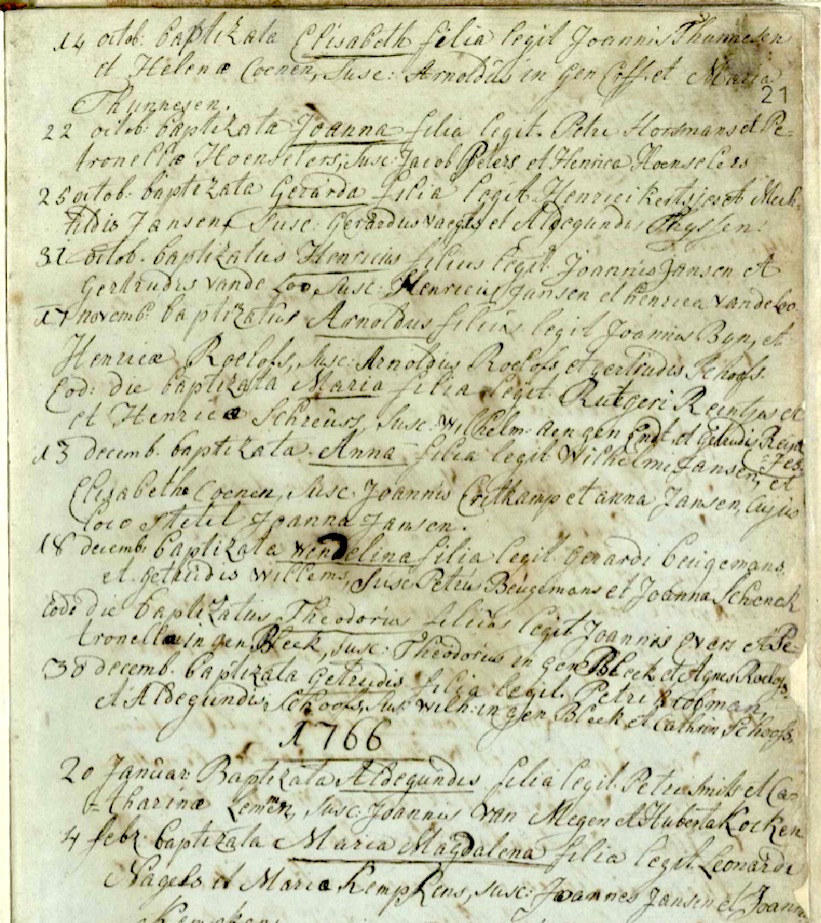 14 octob: baptizata Elisabeth filia legit Joannis Thunnesen
et Helenæ Coenen, Susc: Arnoldus in gen Coff. et Maria
21
Thunnesen.
22 octob: baptizata Joanna filia legit. Petri Horsmans et Pe=
tronellæ Hoenselers, Susc: Jacob Peters et Henrica Hoenselers
25 octob. baptizata Gerarda filia legit. Henrici et Mech=
tildis Jansen, Susc: Gerardus et Aldegundis Thyssen.
31 octob. baptizatus Henricus filius legit. Joannis Jansen et
Gertrudis vande Loo, Susc: Henricus Jansen et henrica vande Loo
17 novemb: baptizatus Arnoldus filius legit Joannis Byn, et
Henricæ Roelofs, Susc: Arnoldus Roelofs et gertrudis Schoofs.
Eod: die baptizata Maria filia legit. Rutgeri Reintjes et
et Henricæ Schreurs, Susc: Wilhelm: aengen Endt et Getrudis Reint=
=jes.
13 decemb. baptizata Anna filia legit Wilhelmi Jansen, et
Elisabethæ Coenen, Susc: Joannis Eritkamp et anna Jansen, Cujus
loco stetit Joanna Jansen.
18 decemb: baptizata Wendelina filia legit Gerardi beugemans
et Getrudis Willems, Susc: Petrus Beugemans et Joanna Schenck
Eode die baptizatus Theodorus filius legit Joannis Evers et Pe=
tronellæ in gen Bleek, Susc: Theodorus in gen Bleek et Agnes Roelofs.
30 decemb. baptizata Getrudis filia legit. Petri
et Aldegundis Schoofs, Sus: Wilh: in gen Bleek et Cathrin Schoofs.
1766
20 Januar: Baptizata Aldegundis filia legit Petri Smits et Ca=
=tharinæ Lemmen, Susc: Joannis Van Megen et Huberta Kocken
4 febr: baptizata Maria Magdalena filia legit Leonardi
Nagels et Mariæ Kempkens, susc: Joannes Jansen et Joanna
Kempkens